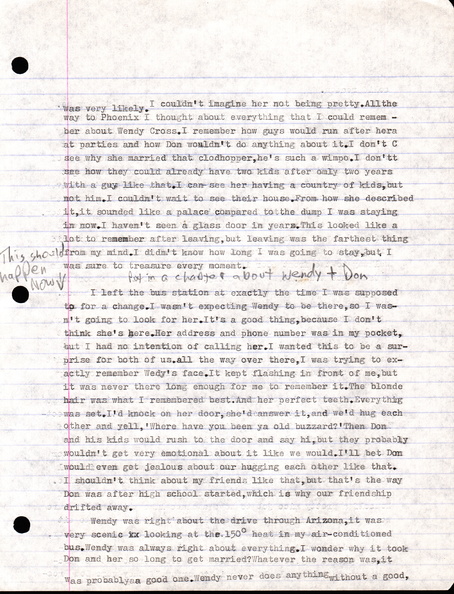 was very likely. I couldn't imagine her not being pretty.Allthe
way to Phoenix I thought about everything that I could remem -
ber about Wendy Cross.I remember how guys would run after hera
at parties and how Don wouldn't do anything about it.I don't C
see why she married that clodhopper,he's such a wimpo.I don'tt
see how they could already have two kids after only two years
with a guy like that.I can see her having a country of kids,but
not him.I couldn't wait to see their house.From how she described
it,it sounded like a palace compared to the dump I was staying
in now.I haven't seen a glass door in years.This looked like a
lot to remember after leaving,but leaving was the farthest thing
from my mind.I didn't know how long I was going to stay,but I
was sure to treasure every moment.
This should
happen
Now
Put in a chapter about Wendy + Don
I left the bus station at exactly the time I was supposed
to for a change.I wasn't expecting Wendy to be there,so I was-
n't going to look for her.It's a good thing,because I don't
think she's here.Her address and phone number was in my pocket,
but I had no intention of calling her.I wanted this to be a sur-
prise for both of us.all the way over there,I was trying to ex-
actly remember Wedy's face.It kept flashing in front of me,but
it was never there long enough for me to remember it.The blonde
hair was what I remembered best.And her perfect teeth.Everything
was set.I'd knock on her door,she'd answer it,and we'd hug each
other and yell,'Where have you been ya old buzzard?'Then Don
and his kids would rush to the door and say hi,but they probably
wouldn't get very emotional about it like we would.I'll bet Don
would even get jealous about our hugging each other like that.
I shouldn't think about my friends like that,but that's the way
Don was after high school started,which is why our friendship
drifted away.
Wendy was right about the drive through Arizona,it was
very scenic xx looking at the 150° heat in my air-conditioned
bus.Wendy was always right about everything.I wonder why it took
Don and her so long to get married?Whatever the reason was,it
was probablya a good one.Wendy never does anything without a good,